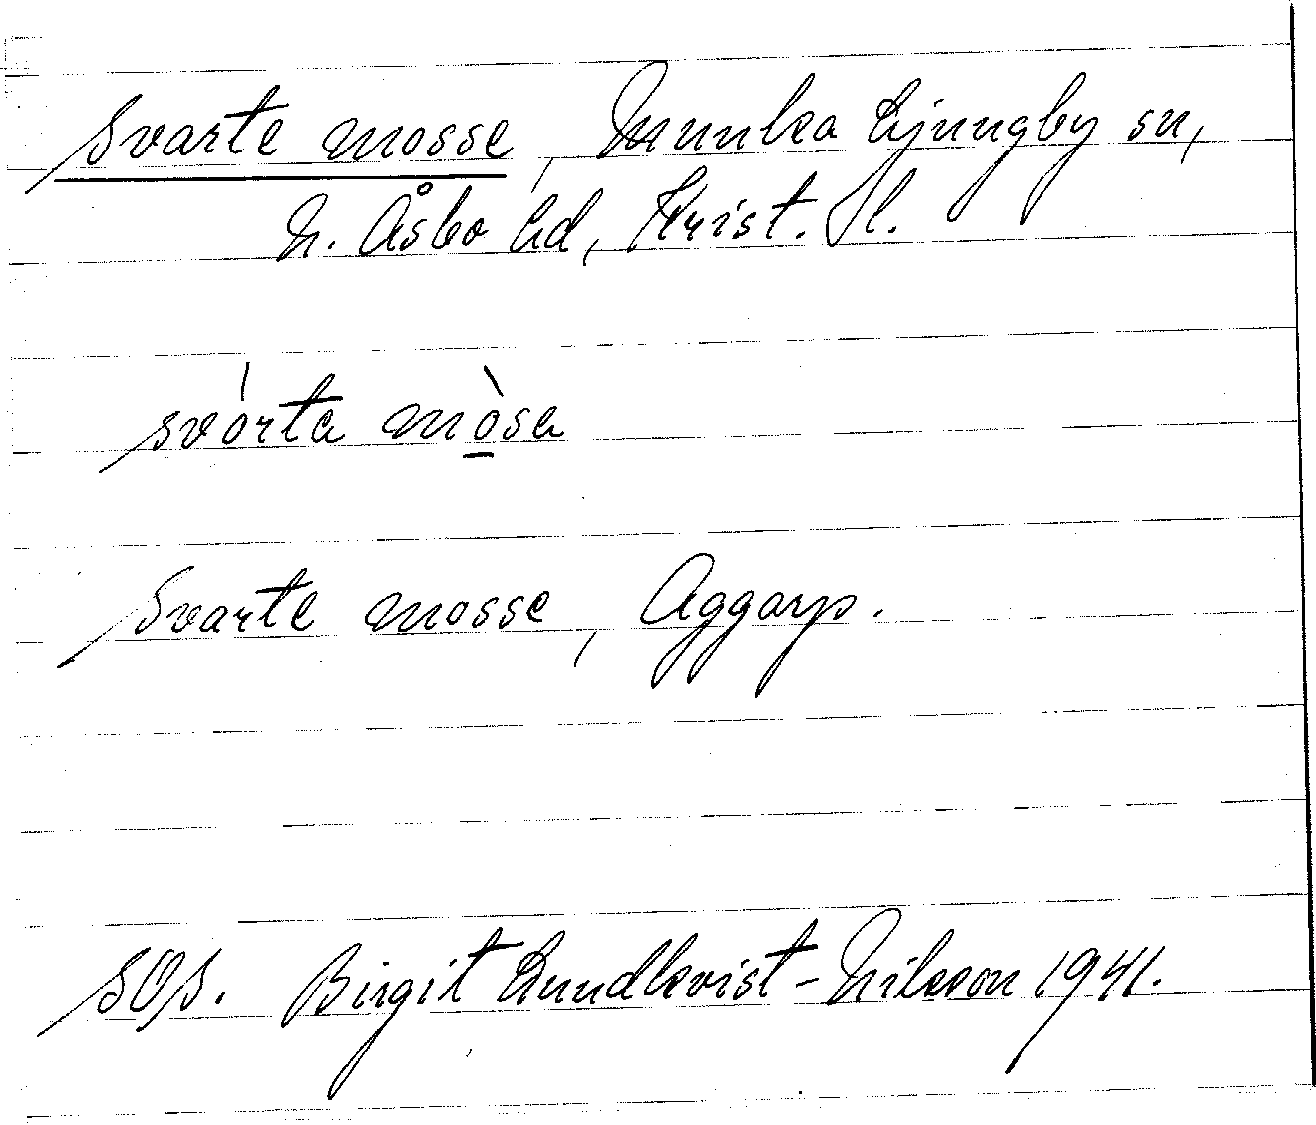 Svarte mosse, Munka Ljungby sn,
N. Åsbo hd, Krist. l.
svórta mò̱sa
Svarte mosse, Aggarp.
SOS. Birgit Lundkvist-Nilsson 1941.